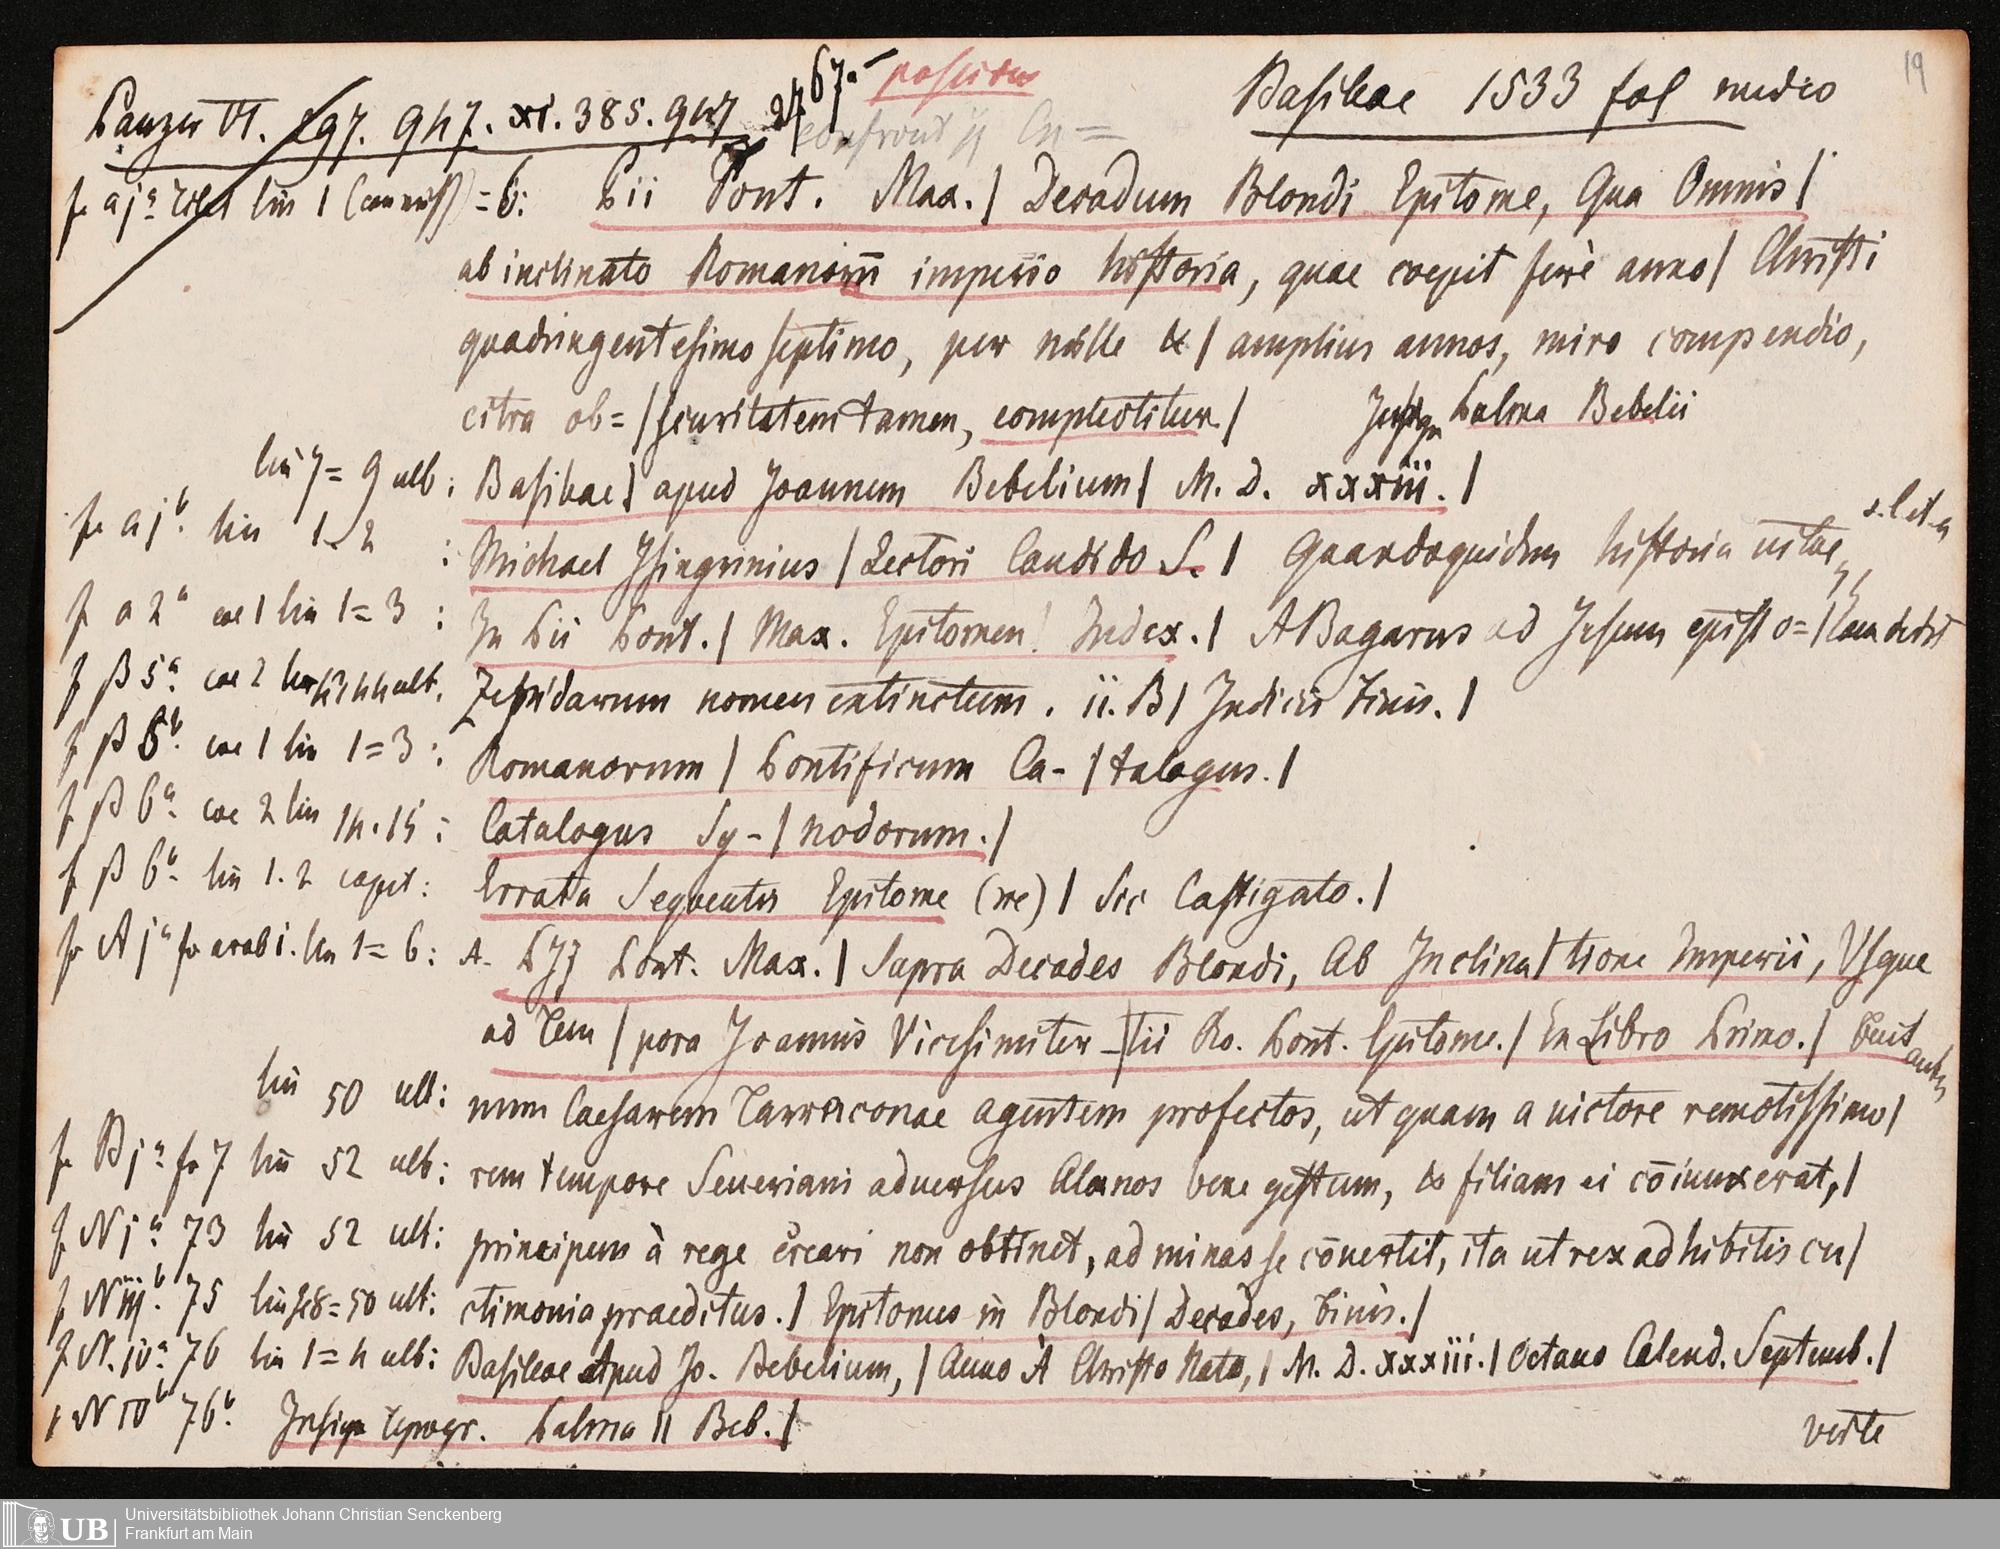 19
Panzer VI. 297. 947. XI. 385. 947 67a possidus Basileae 1533 fol medio
confront
f aja lin 1 = 6: Pii Pont. Max. | Decadum Blondi Epitome, Qua Omnis |
ab inclinato Romanorū imperio historia, quae coepit ferè anno | Christi
quadringentesimo septimo, per mille & | amplius annos, miro compendio,
citra ob= | scuritatem tamen, complectitur. | Insign Palma Bebelii
lin 7 = 9 ult: Basileae | apud Joannem Bebelium | M. D. xxxiii. |
f ajb. lin 1-2 : Michael Isingrinius | Lectori Candido S. | Quandoquidem historia uitae
f a2a col 1 lin 1=3 : In Pii Pont. | Max. Epitomen | Index. | ABagarus ad Jesum episto= | lam dedit
f β5a. col 2 lin 43 44 ult. Zepidarum nomen extinctum. ii. B | Indicis Finis. |
f β5b. col 1 lin 1=3 : Romanorum | Pontificum Ca- | talogus. |
f β6a. col 2 lin 14. 15 : Catalogus Sy- | nodorum. |
f β6b. lin 1. 2 caput : Errata Sequentis Epitome (ne) | Sic Castigato. |
f Aja f arab 1. lin 1=6 : A- PII Pont. Max. | Supra Decades Blondi, Ab Inclina | tione Imperii, Vsque
ad Tem | pora Joannis Vicesimiter- | tii Ro. Pont. Epitome. | Ex Libro Primo. |
lin 50 ult: num Caesarem Tarraconae agentem profectos, ut quam a uictore remotissimo |
f Bja f 7 lin 52 ult: rem tempore Seueriani aduersus Alanos bene gestum, & filiam ei cōiunxerat, |
f Nja 73 lin 52 ult: principem à rege creari non obtinet, ad minas se cōuertit, ita ut rex adhibitis cu |
f Niijb. 75 lin 48=50 ult: ctimonia praeditus. | Epitomes in Blondi | Decades, Finis. |
f N.iva 76 lin 1=4 ult: Basileae Apud Jo. Bebelium, | Anno A Christo Nato, | M. D. xxxiii. | Octauo Calend. Septemb. |
f N ivb 76b. Insign typogr. Palma II Beb. |
verte
UB Universitätsbibliothek Johann Christian Senckenberg
Frankfurt am Main